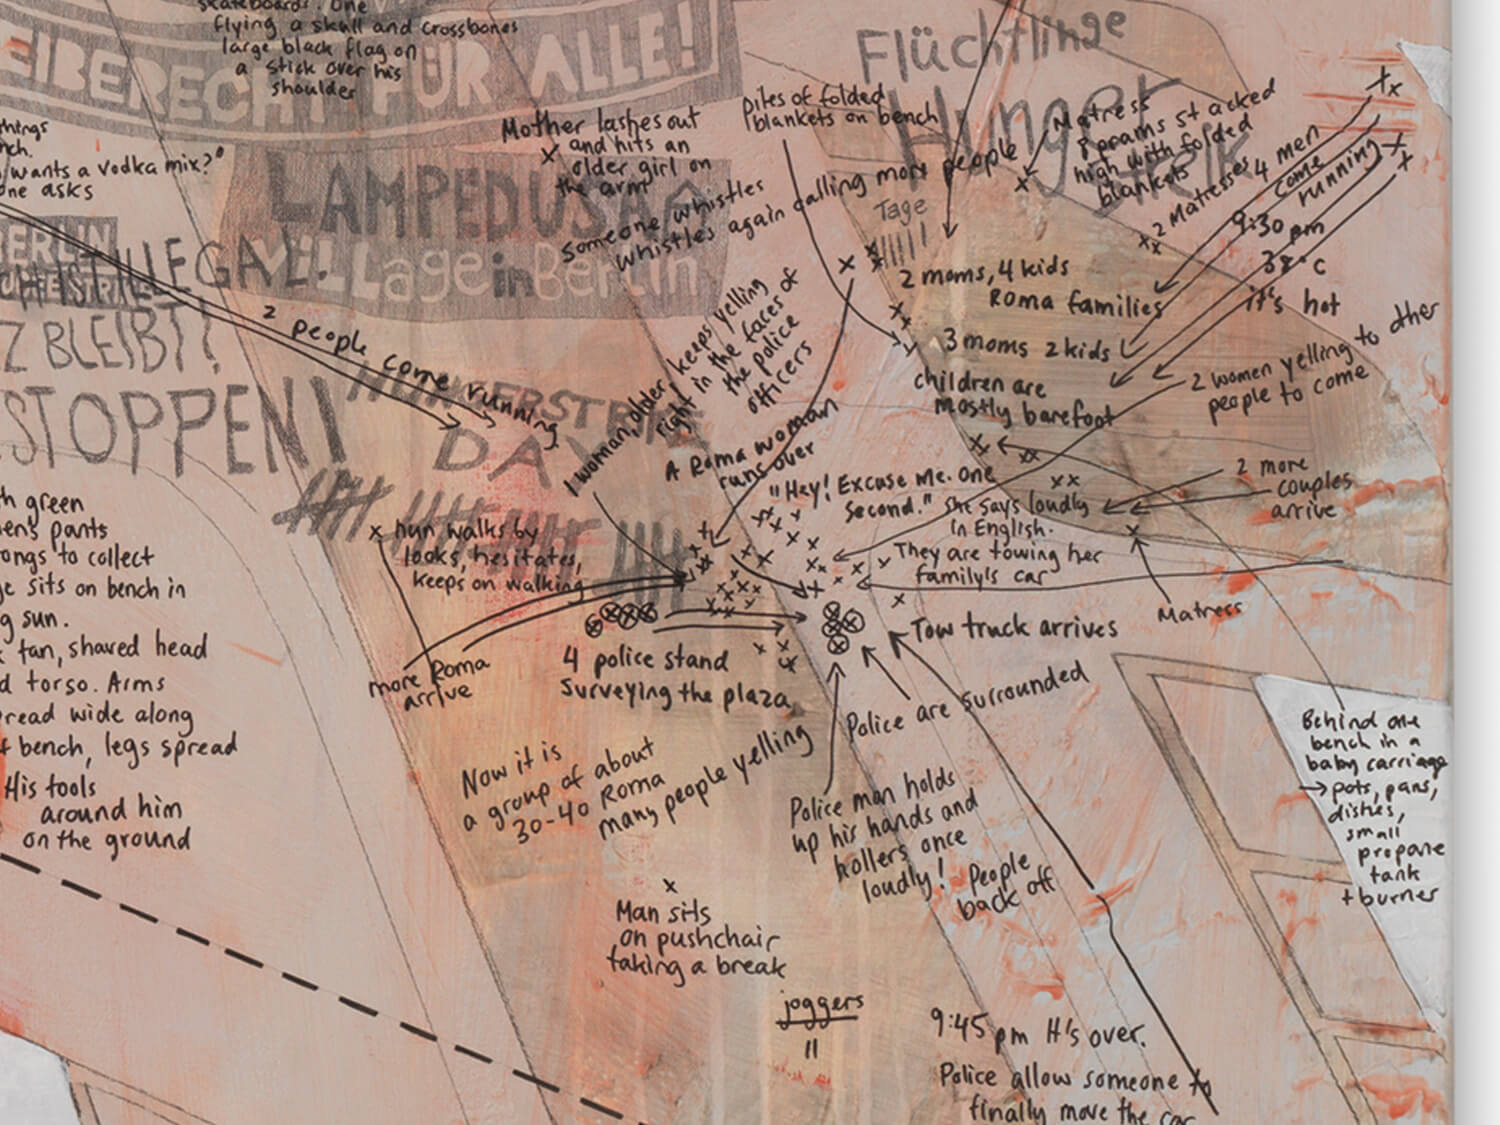 skateboards. One
flying a skull and crossbones
large black flag on
a stick over his
shoulder
EIBERECHT FÜR ALLE!
things
wants a vodka mix?"
one asks
Mother lashes out
and hits an
older girl on
the arm
LAMPEDUSA
VILLage in Berlin
someone whistles
whistles again calling more people
piles of folded
blankets on bench
Flüchtlinge
Hunger
streik
Tage
Matress
8 prams stacked
high with folded
blankets
2 Matresses
4 men
come
running
9:30 pm
38°C
it's hot
BERLIN
ILLEGAL.
BLEIBT?
STOPPEN!
2 people come running
HUNGERSTRIKE
DAY
1 woman, older, keeps yelling
right in the faces of
the police
officers
A Roma woman
runs over
2 moms, 4 kids
Roma families
3 moms 2 kids
children are
mostly barefoot
2 women yelling to other
people to come
"Hey! Excuse me. One
second." She says loudly
in English.
They are towing her
family's car
2 more
couples
arrive
Matress
nun walks by
looks, hesitates,
keeps on walking
more Roma
arrive
4 police stand
surveying the plaza
Tow truck arrives
Police are surrounded
green
pants
to collect
sits on bench in
sun.
tan, shaved head
torso. Arms
wide along
bench, legs spread
His tools
around him
on the ground
Now it is
a group of about
30-40 Roma
many people yelling
Police man holds
up his hands and
hollers once
loudly! People
back off
Behind one
bench in a
baby carriage
→ pots, pans,
dishes,
small
propane
tank
+ burner
Man sits
on pushchair
taking a break
joggers
II
9:45 pm It's over.
Police allow someone to
finally move the car